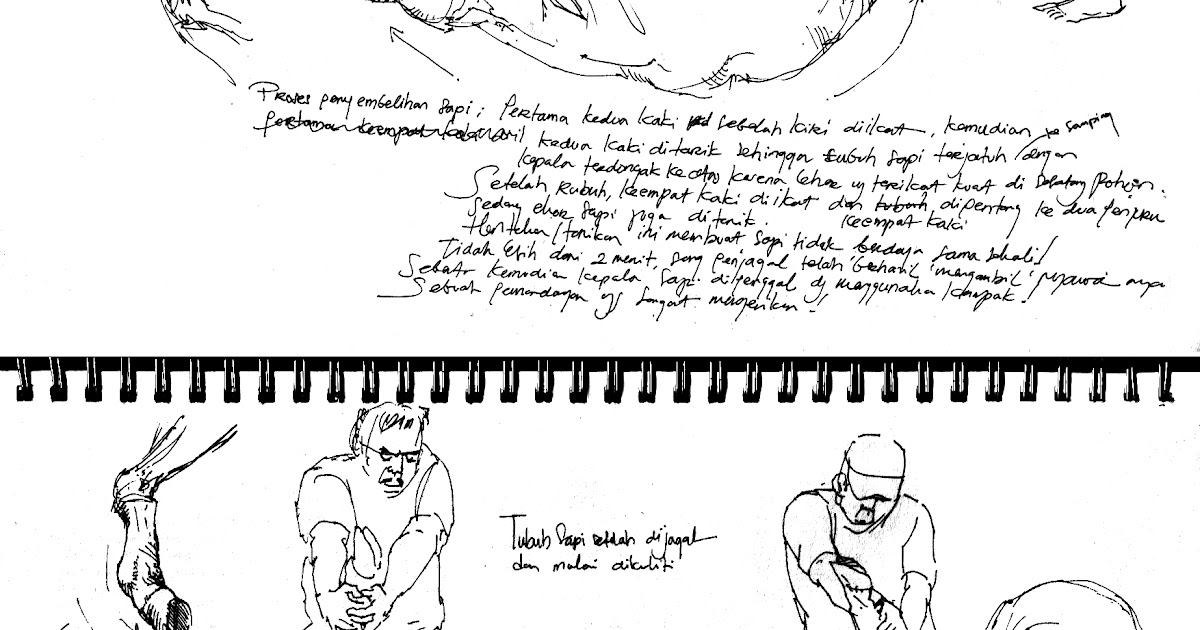 Proses penyembelihan sapi; Pertama kedua kaki sebelah kiri diikat, kemudian
kedua kaki ditarik sehingga tubuh sapi terjatuh ke samping dengan
kepala terdongak ke atas karena leher yg terikat kuat di sebatang pohon.
Setelah rubuh, keempat kaki diikat dan dipentang ke dua penjuru
sedang ekor sapi juga ditarik. keempat kaki
tarikan ini membuat sapi tidak berdaya sama sekali!
Tidak lebih dari 2 menit, sang penjagal telah berhasil 'mengambil' nyawa nya
kemudian kepala sapi dipenggal dg menggunakan kampak!
Sebuah pemandangan yg sangat mengerikan!
Tubuh sapi setelah dijagal
dan mulai dikuliti